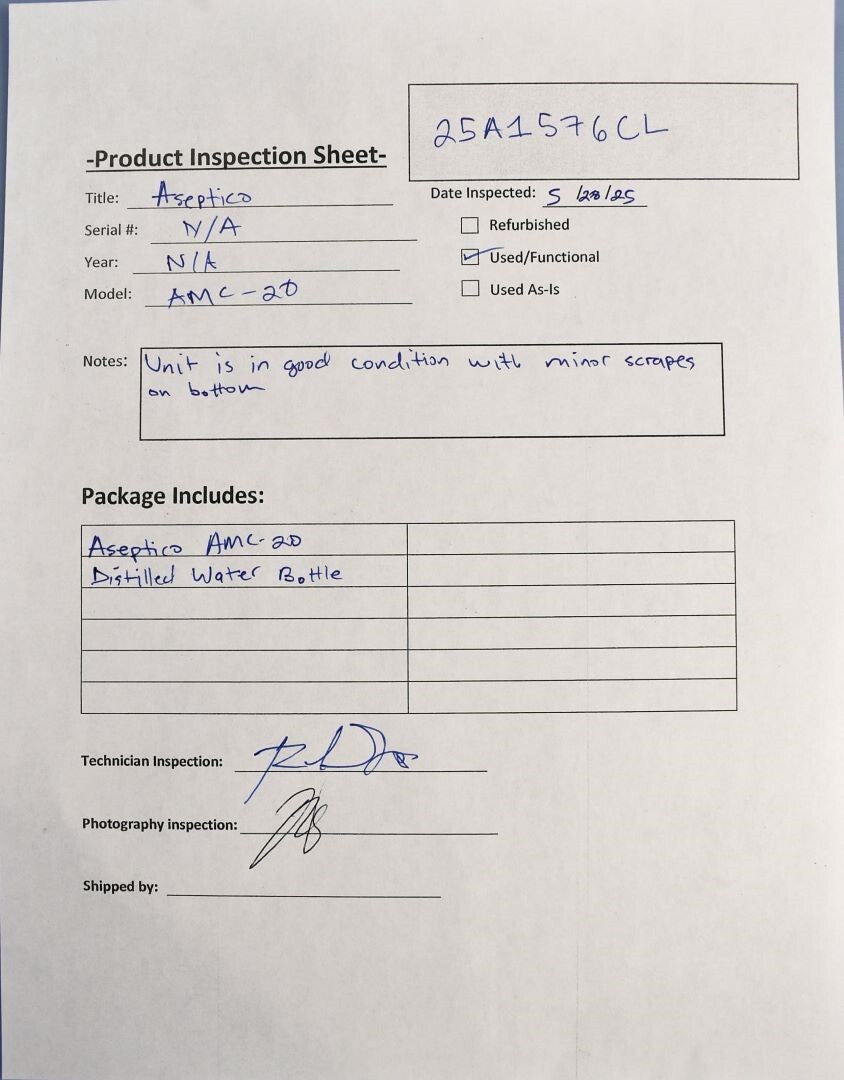 25A1576CL
-Product Inspection Sheet-
Title: Aseptico
Date Inspected: 5/28/25
Serial #: N/A
Refurbished
Year: N/A
Used/Functional
Model: AMC-20
Used As-Is
Notes: Unit is in good condition with minor scrapes
on bottom
Package Includes:
Aseptico AMC-20
Distilled Water Bottle
Technician Inspection:
Photography inspection:
Shipped by: